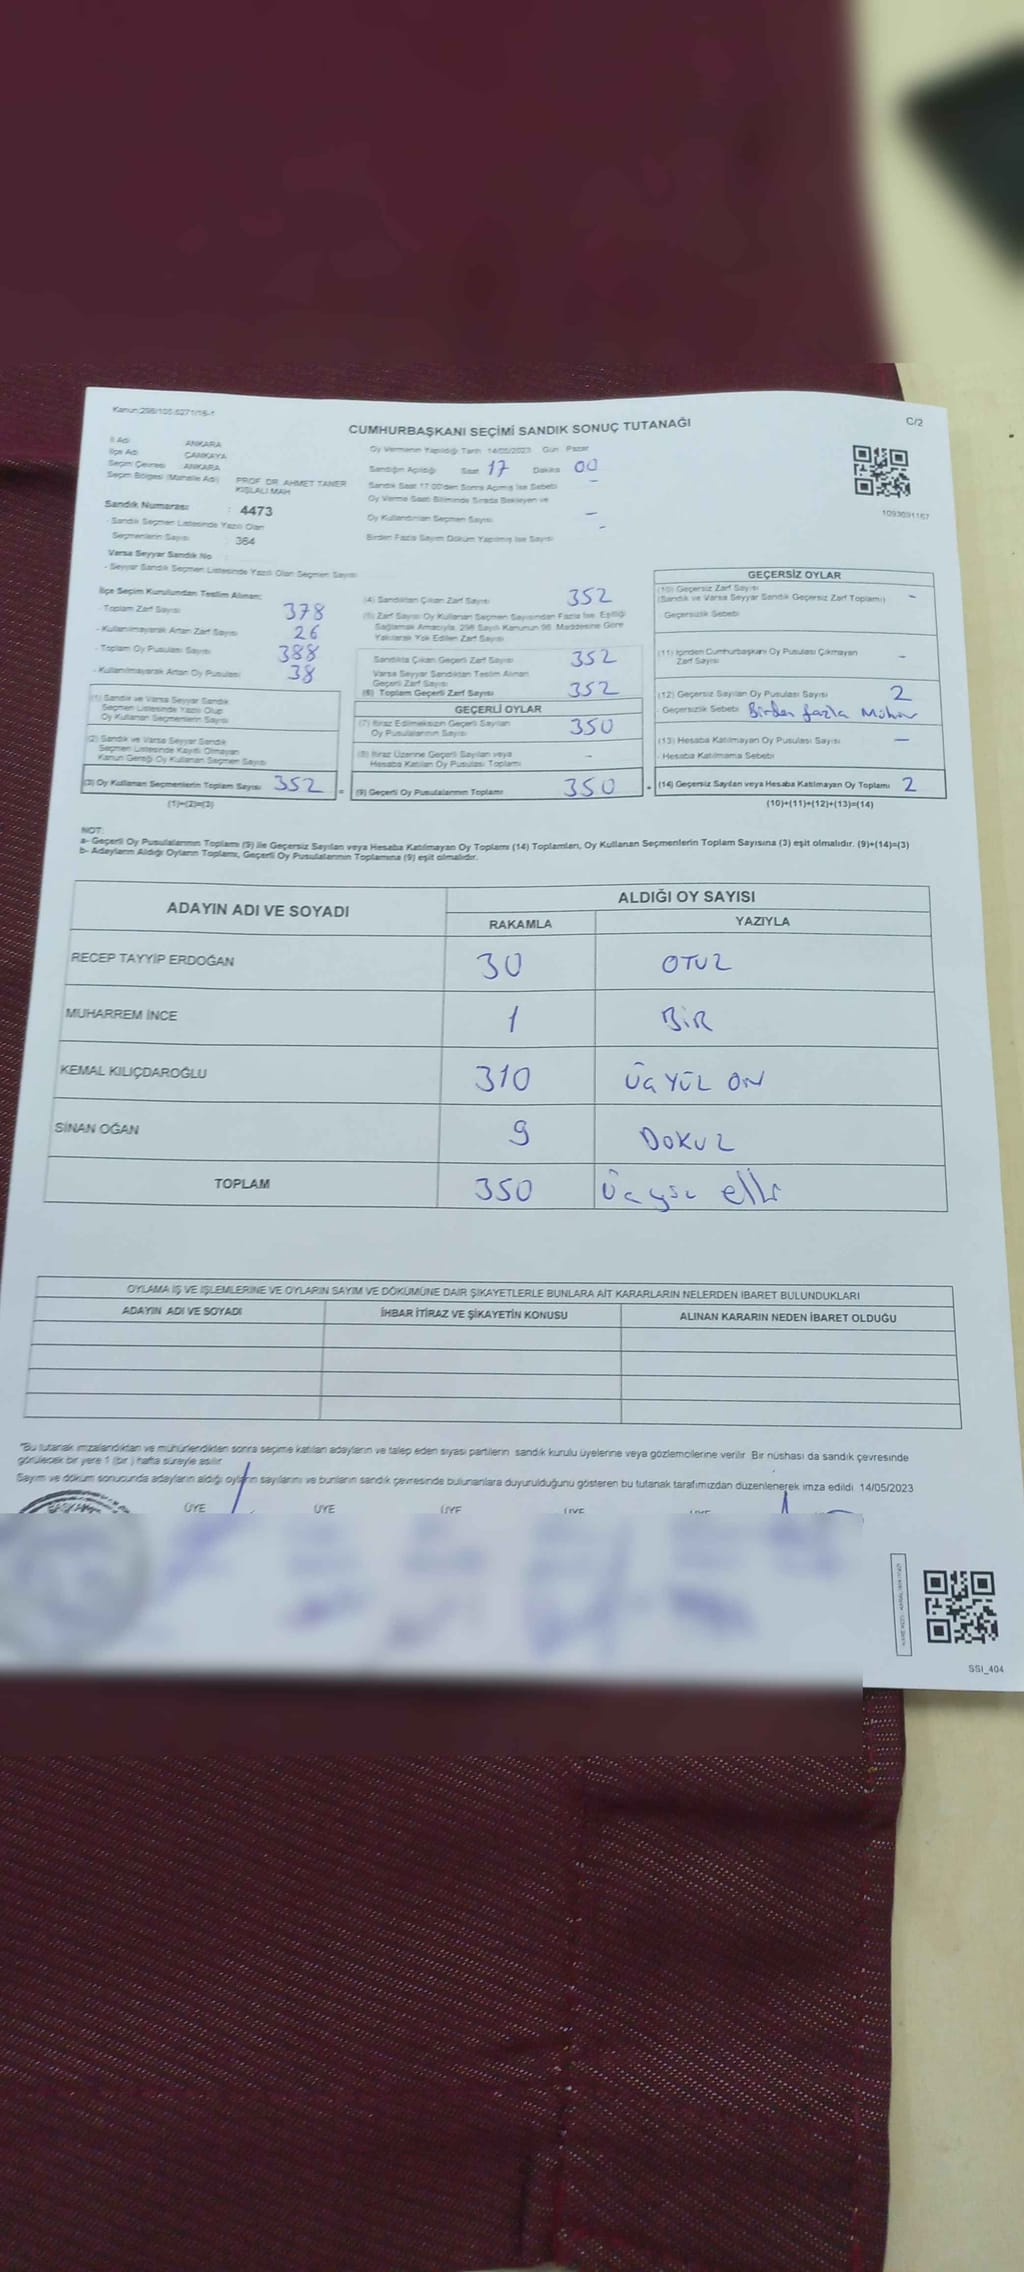 Kanun:298/105,6271/16-1
C/2
CUMHURBAŞKANI SEÇİMİ SANDIK SONUÇ TUTANAĞI
İl Adı ANKARA
İlçe Adı ÇANKAYA
Seçim Çevresi ANKARA
Seçim Bölgesi (Mahalle Adı) PROF. DR. AHMET TANER KIŞLALI MAH
Sandık Numarası : 4473
- Sandık Seçmen Listesinde Yazılı Olan
Seçmenlerin Sayısı : 364
Varsa Seyyar Sandık No
- Seyyar Sandık Seçmen Listesinde Yazılı Olan Seçmen Sayısı
Oy Vermenin Yapıldığı Tarih 14/05/2023 Gün Pazar
Sandığın Açıldığı Saat 17 Dakika 00
Sandık Saat 17:00'den Sonra Açılmış İse Sebebi –
Oy Verme Saati Bitiminde Sırada Bekleyen ve
Oy Kullandırılan Seçmen Sayısı –
Birden Fazla Sayım Döküm Yapılmış İse Sayısı –
1093691167
İlçe Seçim Kurulundan Teslim Alınan:
- Toplam Zarf Sayısı 378
- Kullanılmayarak Artan Zarf Sayısı 26
- Toplam Oy Pusulası Sayısı 388
- Kullanılmayarak Artan Oy Pusulası 38
(1) Sandık ve Varsa Seyyar Sandık
Seçmen Listesinde Yazılı Olup
Oy Kullanan Seçmenlerin Sayısı
(2) Sandık ve Varsa Seyyar Sandık
Seçmen Listesinde Kayıtlı Olmayan
Kanun Gereği Oy Kullanan Seçmen Sayısı
(3) Oy Kullanan Seçmenlerin Toplam Sayısı 352
(1)+(2)=(3)
(4) Sandıktan Çıkan Zarf Sayısı 352
(5) Zarf Sayısı Oy Kullanan Seçmen Sayısından Fazla İse, Eşitliği
Sağlamak Amacıyla, 298 Sayılı Kanunun 98. Maddesine Göre
Yakılarak Yok Edilen Zarf Sayısı
Sandıkta Çıkan Geçerli Zarf Sayısı 352
Varsa Seyyar Sandıktan Teslim Alınan
Geçerli Zarf Sayısı
(6) Toplam Geçerli Zarf Sayısı 352
GEÇERLİ OYLAR
(7) İtiraz Edilmeksizin Geçerli Sayılan
Oy Pusulalarının Sayısı 350
(8) İtiraz Üzerine Geçerli Sayılan veya
Hesaba Katılan Oy Pusulası Toplamı –
= (9) Geçerli Oy Pusulalarının Toplamı 350 +
GEÇERSİZ OYLAR
(10) Geçersiz Zarf Sayısı
(Sandık ve Varsa Seyyar Sandık Geçersiz Zarf Toplamı) –
Geçersizlik Sebebi
(11) İçinden Cumhurbaşkanı Oy Pusulası Çıkmayan
Zarf Sayısı –
(12) Geçersiz Sayılan Oy Pusulası Sayısı 2
Geçersizlik Sebebi Birden fazla Mühür
(13) Hesaba Katılmayan Oy Pusulası Sayısı –
- Hesaba Katılmama Sebebi
(14) Geçersiz Sayılan veya Hesaba Katılmayan Oy Toplamı 2
(10)+(11)+(12)+(13)=(14)
NOT:
a- Geçerli Oy Pusulalarının Toplamı (9) ile Geçersiz Sayılan veya Hesaba Katılmayan Oy Toplamı (14) Toplamları, Oy Kullanan Seçmenlerin Toplam Sayısına (3) eşit olmalıdır. (9)+(14)=(3)
b- Adayların Aldığı Oyların Toplamı, Geçerli Oy Pusulalarının Toplamına (9) eşit olmalıdır.
ADAYIN ADI VE SOYADI ALDIĞI OY SAYISI
RAKAMLA YAZIYLA
RECEP TAYYİP ERDOĞAN 30 OTUZ
MUHARREM İNCE 1 BİR
KEMAL KILIÇDAROĞLU 310 ÜÇ YÜZ ON
SİNAN OĞAN 9 DOKUZ
TOPLAM 350 Üçyüz elli
OYLAMA İŞ VE İŞLEMLERİNE VE OYLARIN SAYIM VE DÖKÜMÜNE DAİR ŞİKAYETLERLE BUNLARA AİT KARARLARIN NELERDEN İBARET BULUNDUKLARI
ADAYIN ADI VE SOYADI İHBAR İTİRAZ VE ŞİKAYETİN KONUSU ALINAN KARARIN NEDEN İBARET OLDUĞU
"Bu tutanak imzalandıktan ve mühürlendikten sonra seçime katılan adayların ve talep eden siyasi partilerin sandık kurulu üyelerine veya gözlemcilerine verilir. Bir nüshası da sandık çevresinde
görülecek bir yere 1 (bir) hafta süreyle asılır.
Sayım ve döküm sonucunda adayların aldığı oyların sayılarını ve bunların sandık çevresinde bulunanlara duyurulduğunu gösteren bu tutanak tarafımızdan düzenlenerek imza edildi. 14/05/2023
BAŞKAN ÜYE ÜYE ÜYE ÜYE ÜYE
SSI_404